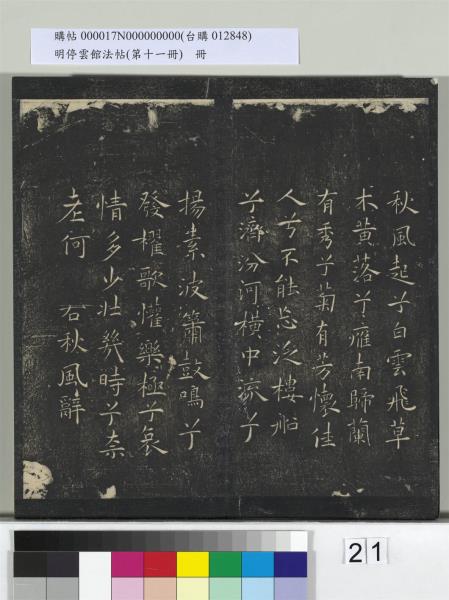 購帖 000017N000000000(台購 012848)
明停雲館法帖(第十一冊) 冊
秋風起兮白雲飛草
木黄落兮雁南歸蘭
有秀兮菊有芳懷佳
人兮不能忘泛樓船
兮濟汾河橫中流兮
揚素波簫鼓鳴兮
發櫂歌懽樂極兮哀
情多少壯幾時兮柰
老何 右秋風辭
21